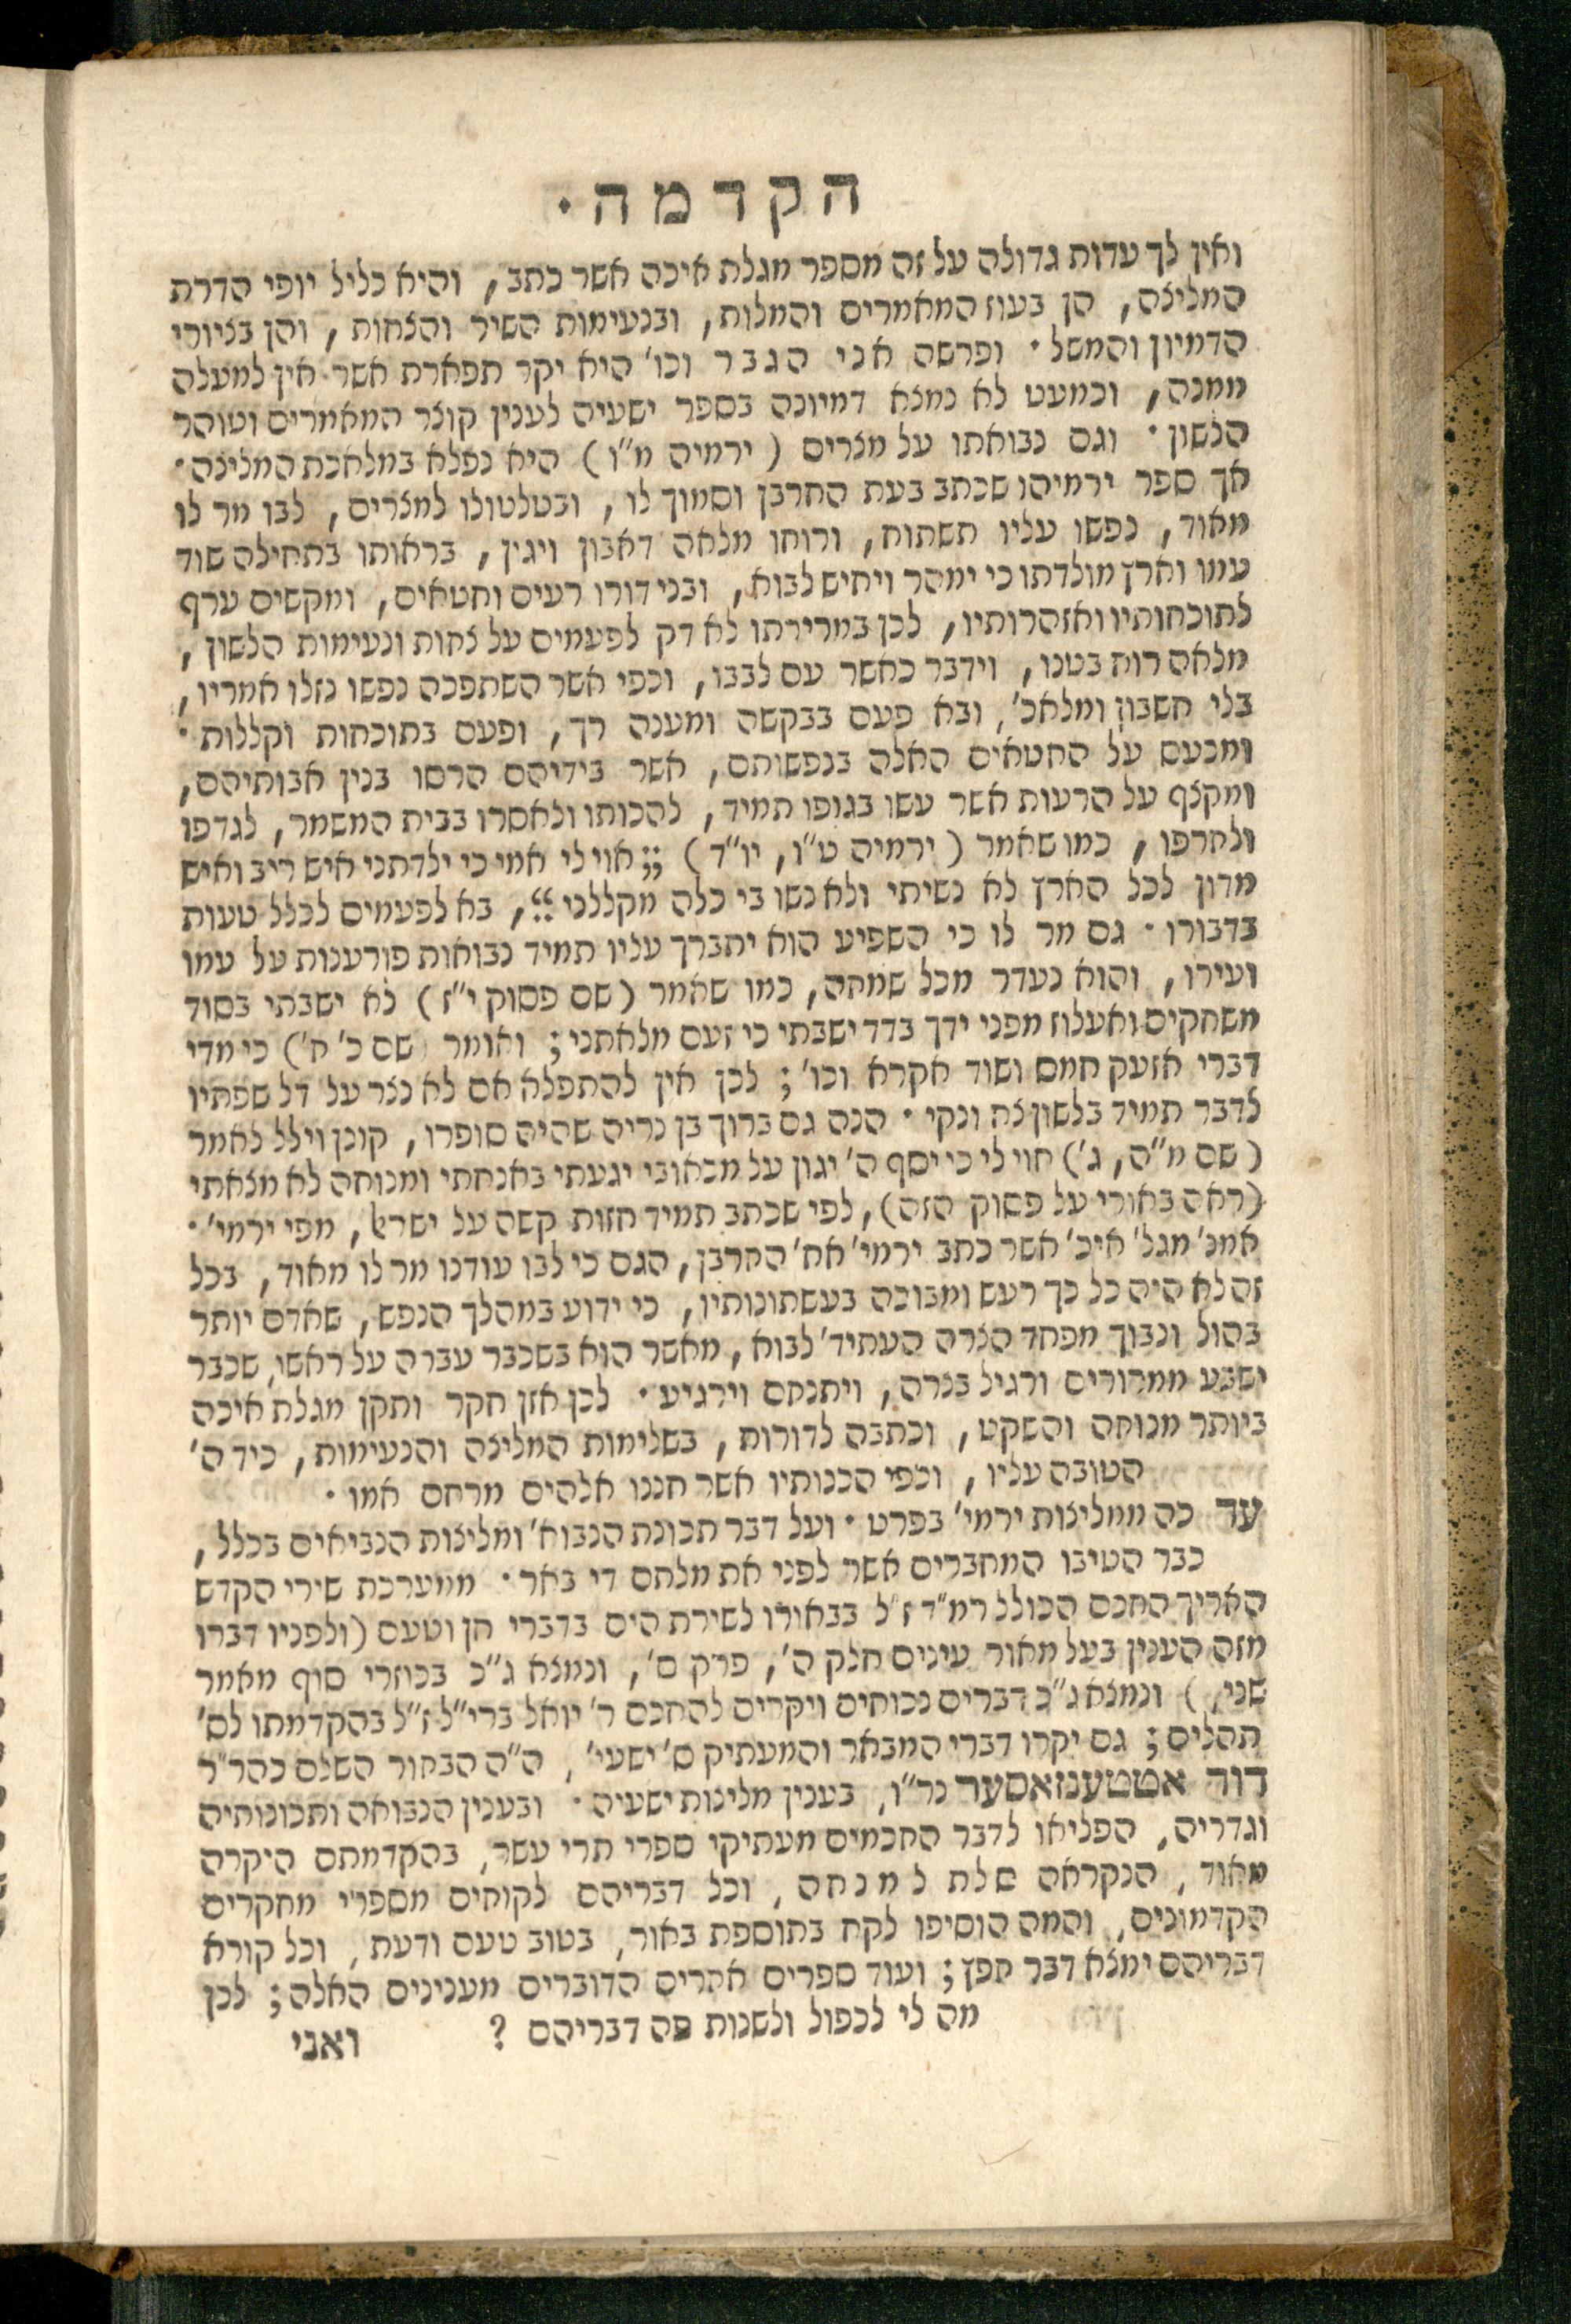 הקדמה·
ואין לך עדות גדולה על זה מספר מגלת איכה אשר כתב, והיא כליל יופי הדרת
המליצה, הן בעוז המאמרים והמלות, ובנעימות השיר והצחות, והן בציורי
הדמיון והמשל· ופרשה אני הגבר וכו' היא יקר תפארת אשר אין למעלה
ממנה, וכמעט לא נמצא דמיונה בספר ישעיה לענין קוצר המאמרים וטוהר
הלשון· וגם נבואתו על מצרים (ירמיה מ"ו) היא נפלא במלאכת המליצה·
אך ספר ירמיהו שכתב בעת החרבן וסמוך לו, ובטלטולו למצרים, לבו מר לו
מאוד, נפשו עליו תשתוח, ורוחו מלאה דאבון ויגין, בראותו בתחילה שוד
עמו וארץ מולדתו כי ימהר ויחיש לבוא, ובני דורו רעים וחטאים, ומקשים ערף
לתוכחותיו ואזהרותיו, לכן במרירתו לא דק לפעמים על צחות ונעימות הלשון,
מלאה רוח בטנו, וידבר כאשר עם לבבו, וכפי אשר השתפכה נפשו נזלו אמריו,
בלי חשבון ומלאכ', ובא פעם בבקשה ומענה רך, ופעם בתוכחות וקללות·
ומכעס על החטאים האלה בנפשותם, אשר בידיהם הרסו בנין אבותיהם,
ומקצף על הרעות אשר עשו בגופו תמיד, להכותו ולאסרו בבית המשמר, לגדפו
ולחרפו, כמו שאמר (ירמיה ט"ו, יו"ד) ;;אוי לי אמי כי ילדתני איש ריב ואיש
מדון לכל הארץ לא נשיתי ולא נשו בי כלה מקללני", בא לפעמים לכלל טעות
בדבורו· גם מר לו כי השפיע הוא יתברך עליו תמיד נבואות פורענות על עמו
ועירו, והוא נעדר מכל שמחה, כמו שאמר (שם פסוק י"ז) לא ישבתי בסוד
משחקים ואעלוז מפני ידך בדד ישבתי כי זעם מלאתני; ואומר (שם כ' ח') כי מדי
דברי אזעק חמס ושוד אקרא וכו'; לכן אין להתפלא אם לא נצר על דל שפתיו
לדבר תמיד בלשון צח ונקי· הנה גם ברוך בן נריה שהיה סופרו, קונן וילל לאמר
(שם מ"ה, ג') אוי לי כי יסף ה' יגון על מכאובי יגעתי באנחתי ומנוחה לא מצאתי
(ראה באורי על פסוק הזה), לפי שכתב תמיד חזות קשה על ישראל, מפי ירמי'·
אמנ' מגל' איכ' אשר כתב ירמי' אח' החרבן, הגם כי לבו עודנו מר לו מאוד, בכל
זה לא היה כל כך רעש ומבוכה בעשתונותיו, כי ידוע במהלך הנפש, שאדם יותר
בהול ונבוך מפחד הצרה העתיד' לבוא, מאשר הוא בשכבר עברה על ראשו, שכבר
ישבע ממרורים ורגיל בצרה, ויתנחם וירגיע· לכן אזן חקר ותקן מגלת איכה
ביותר מנוחה והשקט, וכתבה לדורות, בשלימות המליצה והנעימות, כיד ה'
הטובה עליו, וכפי הכנותיו אשר חננו אלהים מרחם אמו·
עד כה ממליצות ירמי' בפרט· ועל דבר תכונת הנבוא' ומליצות הנביאים בכלל,
כבר הטיבו המחברים אשר לפני את מלתם די באר· ממערכת שירי הקדש
האריך החכם הכולל רמ"ד ז"ל בבאורו לשירת הים בדברי חן וטעם (ולפניו דברו
מזה הענין בעל מאור עינים חלק ה', פרק ס', ונמצא ג"כ בכוזרי סוף מאמר
שני,) ונמצא ג"כ דברים נכוחים ויקרים להחכם ר' יואל ברי"ל ז"ל בהקדמתו לס'
תהלים; גם יקרו דברי המבאר והמעתיק ס' ישעי', ה"ה הבחור השלם כהר"ר
דוד אטטענזאסער נר"ו, בענין מליצות ישעיה· ובענין הנבואה ותכונותיה
וגדריה, הפליאו לדבר החכמים מעתיקי ספרי תרי עשר, בהקדמתם היקרה
מאוד, הנקראה סלת למנחה, וכל דבריהם לקוחים מספרי מחקרים
הקדמונים, והמה הוסיפו לקח בתוספת באור, בטוב טעם ודעת, וכל קורא
דבריהם ימצא דבר חפץ; ועוד ספרים אחרים הדוברים מענינים האלה; לכן
מה לי לכפול ולשנות פה דבריהם? ואני